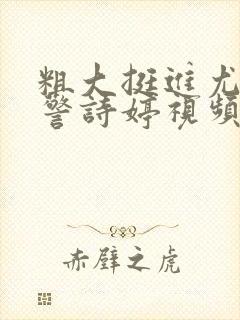 粗大挺进尤
警詩婷視頻
赤壁之虎